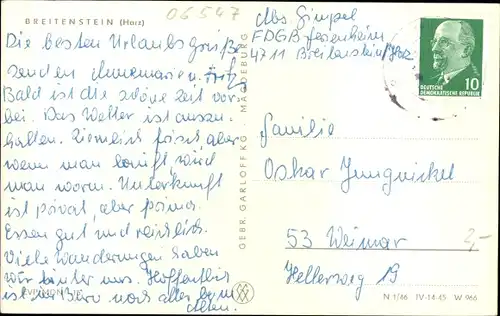 BREITENSTEIN (Harz)
06547
Die besten Urlaubsgrüße
senden Annemarie u. Fritz
Bald ist die schöne Zeit vor-
bei. Das Wetter ist auszu-
halten. Ziemlich frisch aber
wenn man läuft wird
man warm. Unterkunft
ist privat, aber prima.
Essen gut und reichlich.
Viele Wanderungen haben
wir hinter uns. Hoffentlich
ist im Büro noch alles beim
alten.
GEBR. GARLOFF KG. MAGDEBURG
Abs Gimpel
FDGB Ferienheim
4711 Breitenstein/Harz
10
DEUTSCHE
DEMOKRATISCHE REPUBLIK
Familie
Oskar Jungnickel
53 Weimar
Hellerweg 19
2,-
N 1/46 IV-14-45 W 966